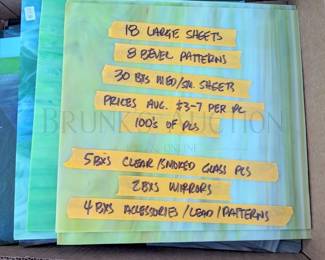 18 LARGE SHEETS
8 BEVEL PATTERNS
30 BXS MED/SM. SHEETS
PRICES AVG. $3-7 PER PC
100'S OF PCS
BRUNK AUCTION
ONLINE
5 BXS CLEAR/SMOKED GLASS PCS
2 BXS MIRRORS
4 BXS ACCESSORIES/LEAD/PATTERNS